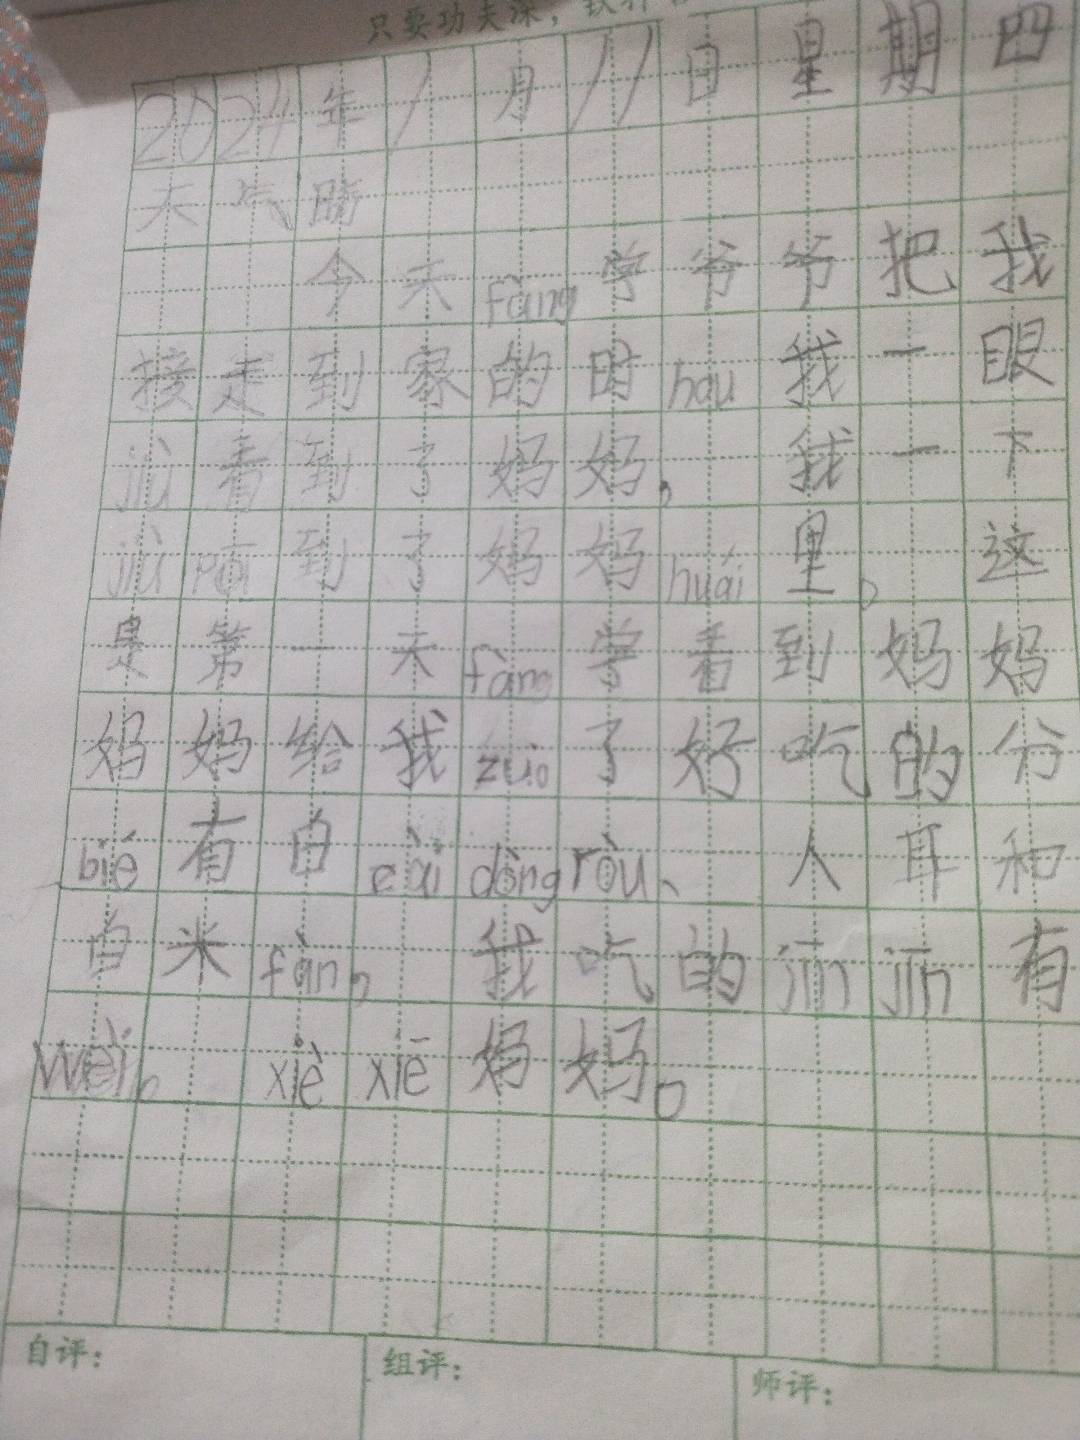 只要功夫深，铁杵
2024年1月11日星期四
天气晴
今天fàng学爷爷把我
接走到家的时hou我一眼
jiù看到了妈妈，我一下
jiù pū到了妈妈huái里。这
是第一天fàng学看到妈妈
妈妈给我zuò了好吃的分
bié有白cài dòng ròu、人耳和
白米fàn，我吃的jīn jīn有
wèi。xiè xiē妈妈。
自评： 组评： 师评：